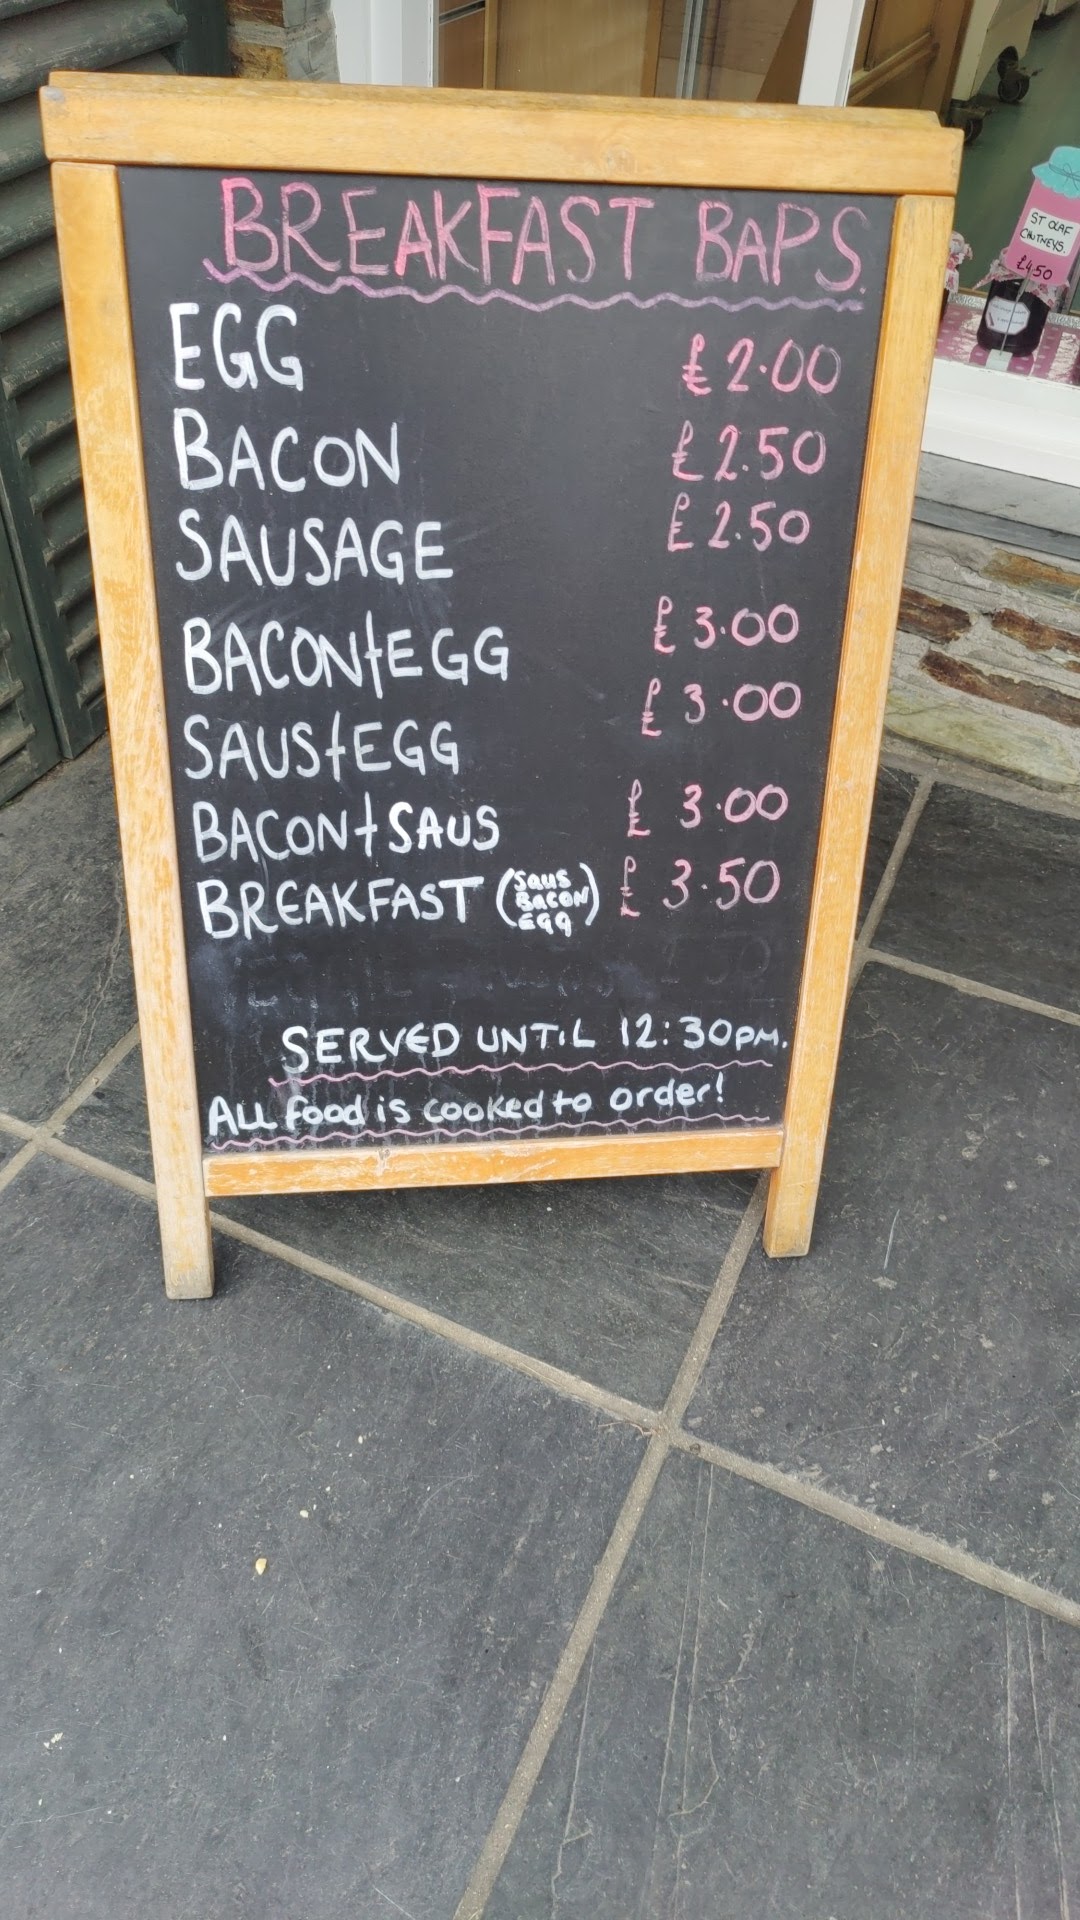 BREAKFAST BAPS.
EGG £2.00
BACON £2.50
SAUSAGE £2.50
BACON+EGG £3.00
SAUS+EGG £3.00
BACON+SAUS £3.00
BREAKFAST (SAUS BACON EGG) £3.50
SERVED UNTIL 12:30PM.
ALL food is cooked to order!
ST OLAF
CHUTNEYS.
£4.50